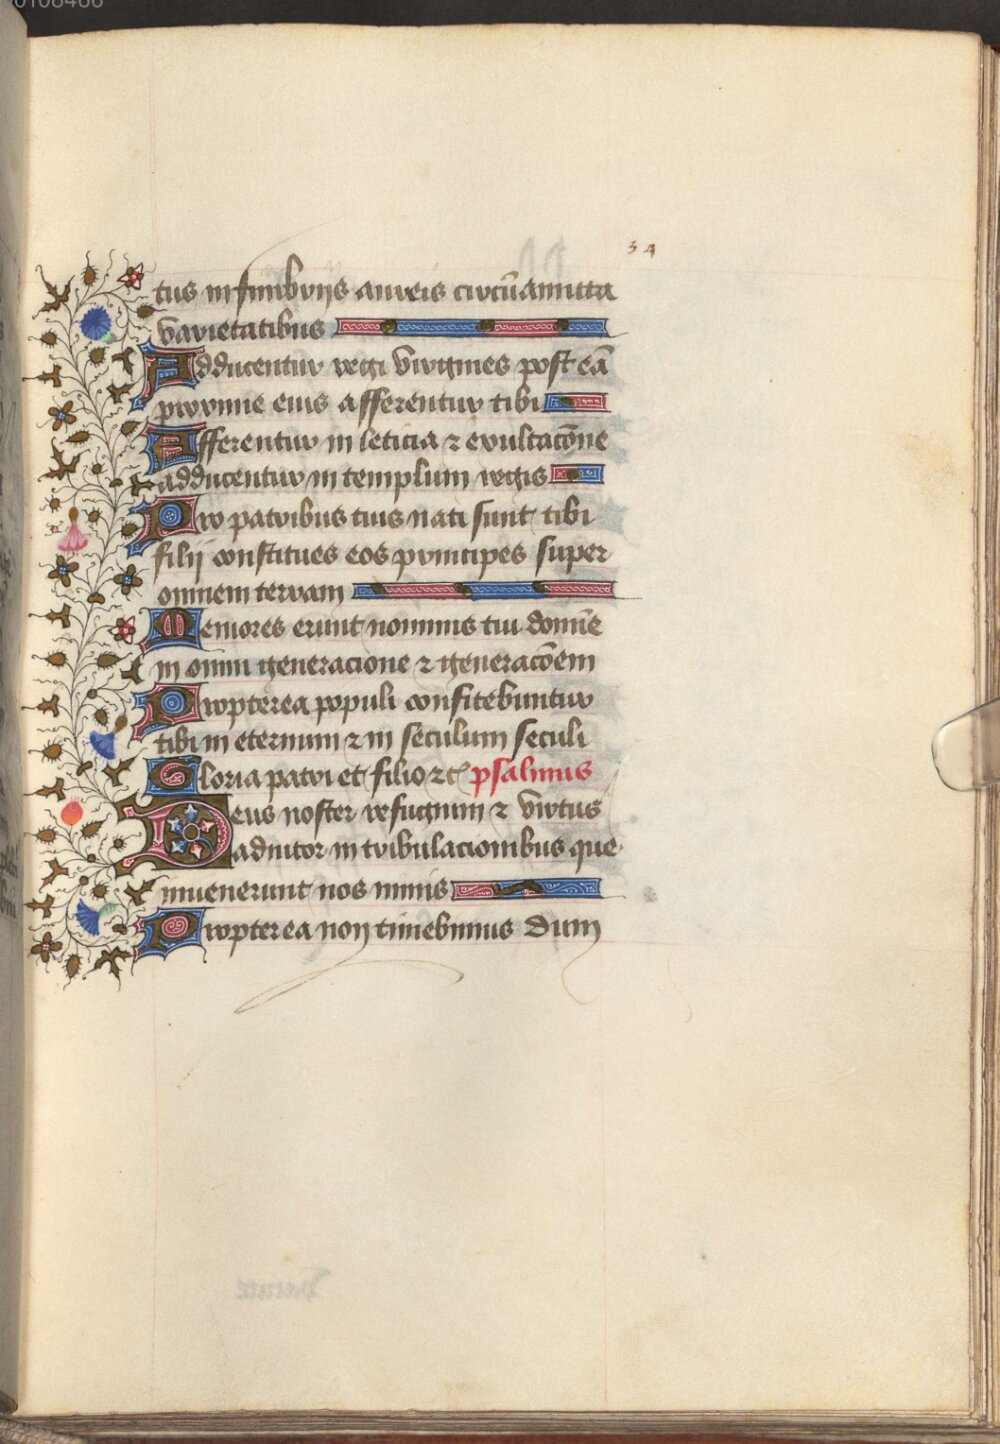 00108466
34
tus in fimbrijs aureis circũamicta
varietatibus
Adducentur regi virgines post eã
proxime eius afferentur tibi
Afferentur in leticia ⁊ exultacõne
adducentur in templum regis
Pro patribus tuis nati sunt tibi
filij constitues eos principes super
omnem terram
Memores erunt nominis tui domĩe
in omni generacione ⁊ generacõem
Propterea populi confitebuntur
tibi in eternum ⁊ in seculum seculi
Gloria patri et filio ⁊c̃ psalmus
Deus noster refugium ⁊ virtus
adiutor in tribulacionibus que
inuenerunt nos nimis
Propterea non timebimus dum